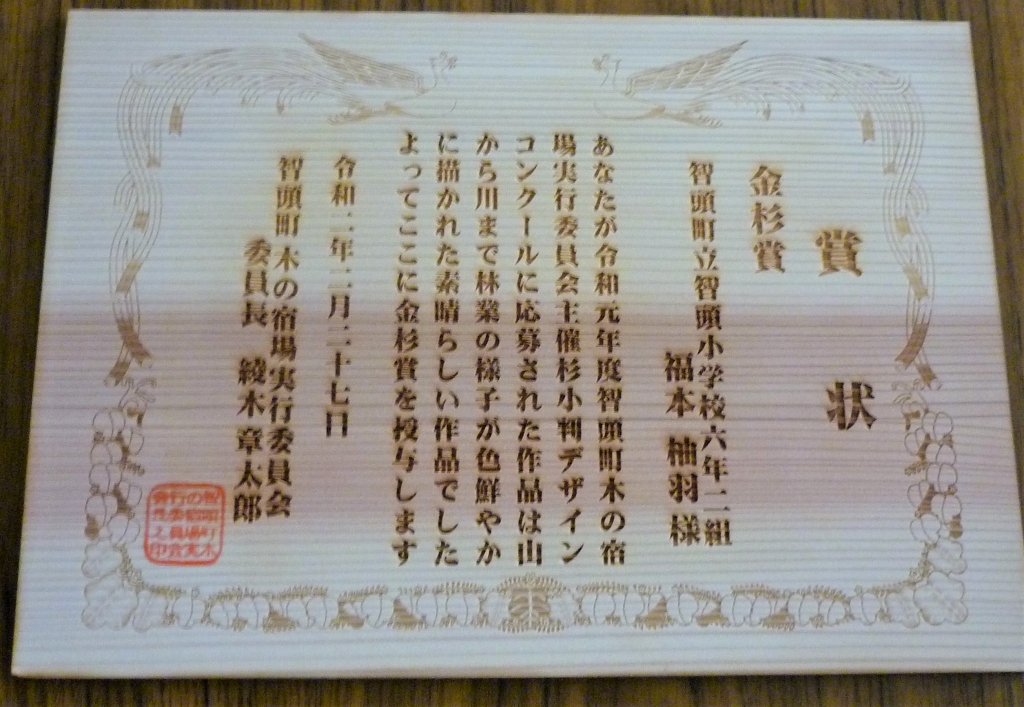 賞状
金杉賞
智頭町立智頭小学校六年二組
福本 柚羽様
あなたが令和元年度智頭町木の宿
場実行委員会主催杉小判デザイン
コンクールに応募された作品は山
から川まで林業の様子が色鮮やか
に描かれた素晴らしい作品でした
よってここに金杉賞を授与します
令和二年二月二十七日
智頭町 木の宿場実行委員会
委員長 綾木章太郎
智頭町木
の宿場実
行委員会